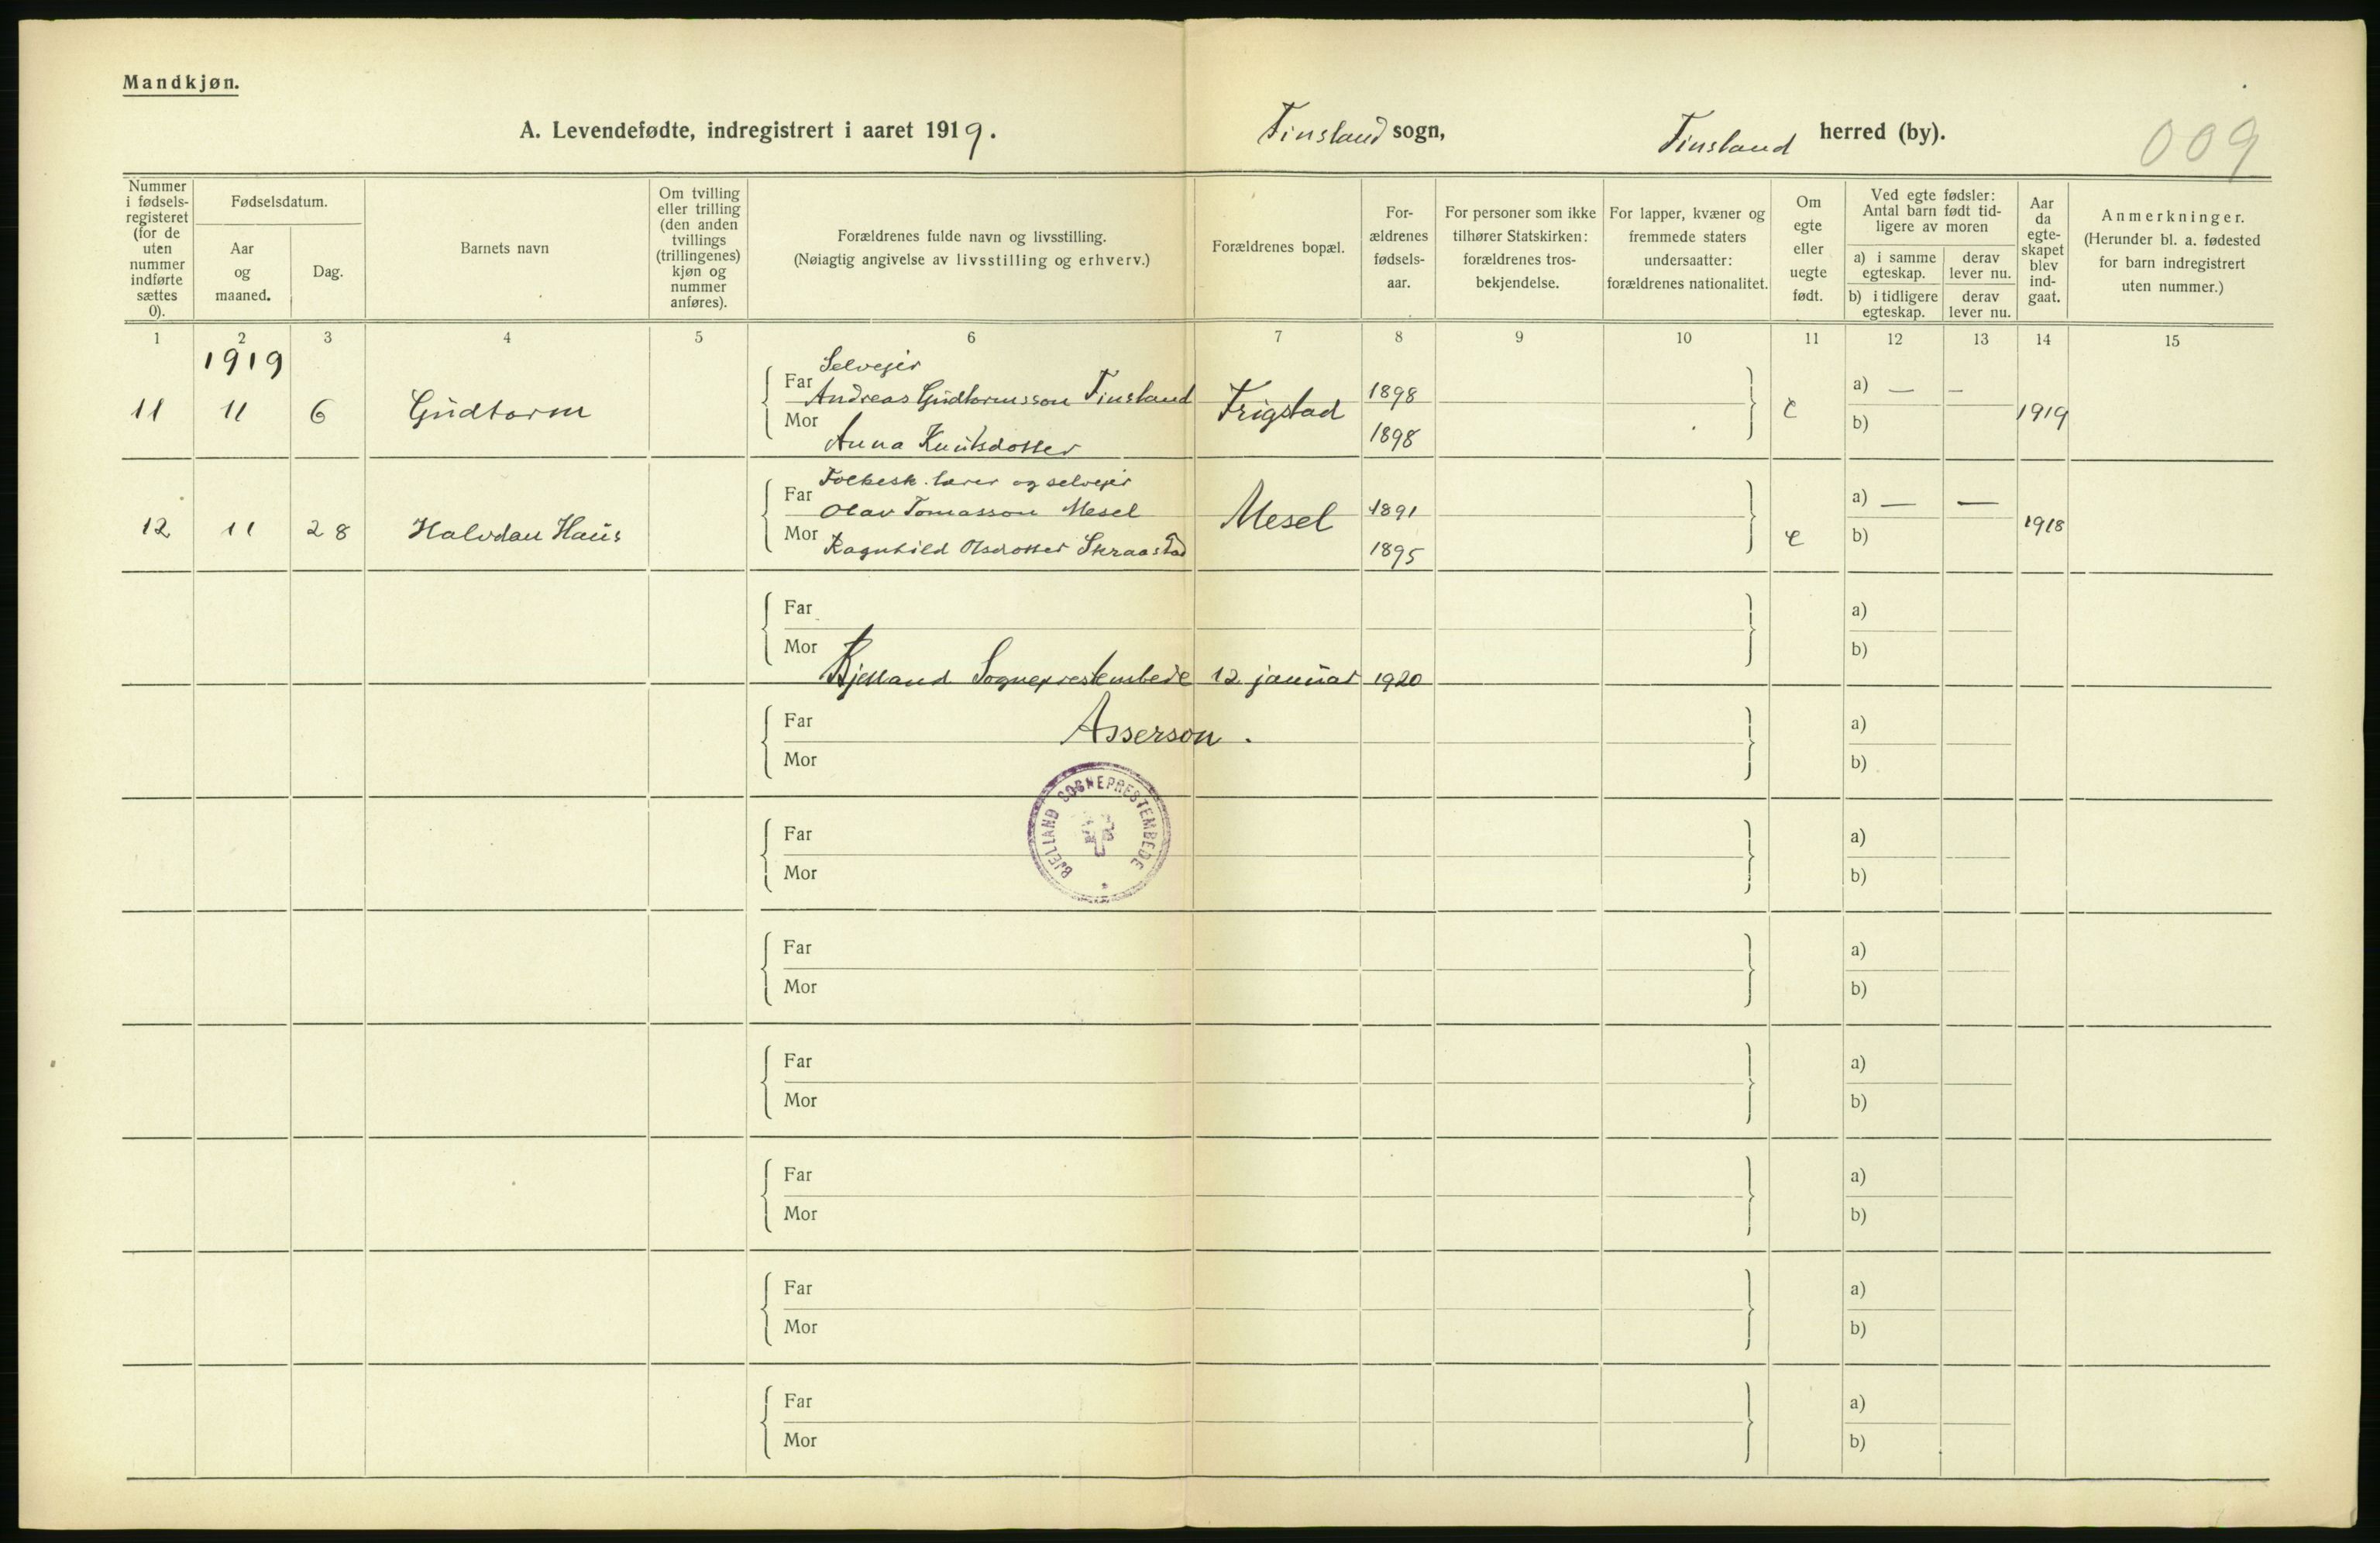 Mandkjøn.
A. Levendefødte, indregistrert i aaret 1919. Finsland sogn, Finsland herred (by).
009
Nummer i fødsels-registeret (for de uten nummer indførte sættes 0).
Fødselsdatum.
Aar og maaned.
Dag.
Barnets navn
Om tvilling eller trilling (den anden tvillings (trillingenes) kjøn og nummer anføres).
Forældrenes fulde navn og livsstilling.
(Nøiagtig angivelse av livsstilling og erhverv.)
Forældrenes bopæl.
For-ældrenes fødsels-aar.
For personer som ikke tilhører Statskirken: forældrenes tros-bekjendelse.
For lapper, kvæner og fremmede staters undersaatter: forældrenes nationalitet.
Om egte eller uegte født.
Ved egte fødsler: Antal barn født tid-ligere av moren
a) i samme egteskap.
derav lever nu.
b) i tidligere egteskap.
derav lever nu.
Aar da egte-skapet blev ind-gaat.
Anmerkninger.
(Herunder bl. a. fødested for barn indregistrert uten nummer.)
1 2 3 4 5 6 7 8 9 10 11 12 13 14 15
1919
Selvejer
11 11 6 Gudtorm Far Andreas Gudtormsson Finsland Frigstad 1898 e a) — — 1919
Mor Anna Knutsdotter 1898 b)
Folkesk. lærer og selvejer
12 11 28 Halvdan Haus Far Olav Tomasson Mesel Mesel 1891 e a) — — 1918
Mor Ragnhild Olsdotter Skraastad 1895 b)
Far a)
Mor b)
Bjelland Sogneprestembede 12. januar 1920
Far a)
Asserson.
Mor b)
BJELLAND SOGNEPRESTEMBEDE
Far a)
Mor b)
Far a)
Mor b)
Far a)
Mor b)
Far a)
Mor b)
Far a)
Mor b)
Far a)
Mor b)